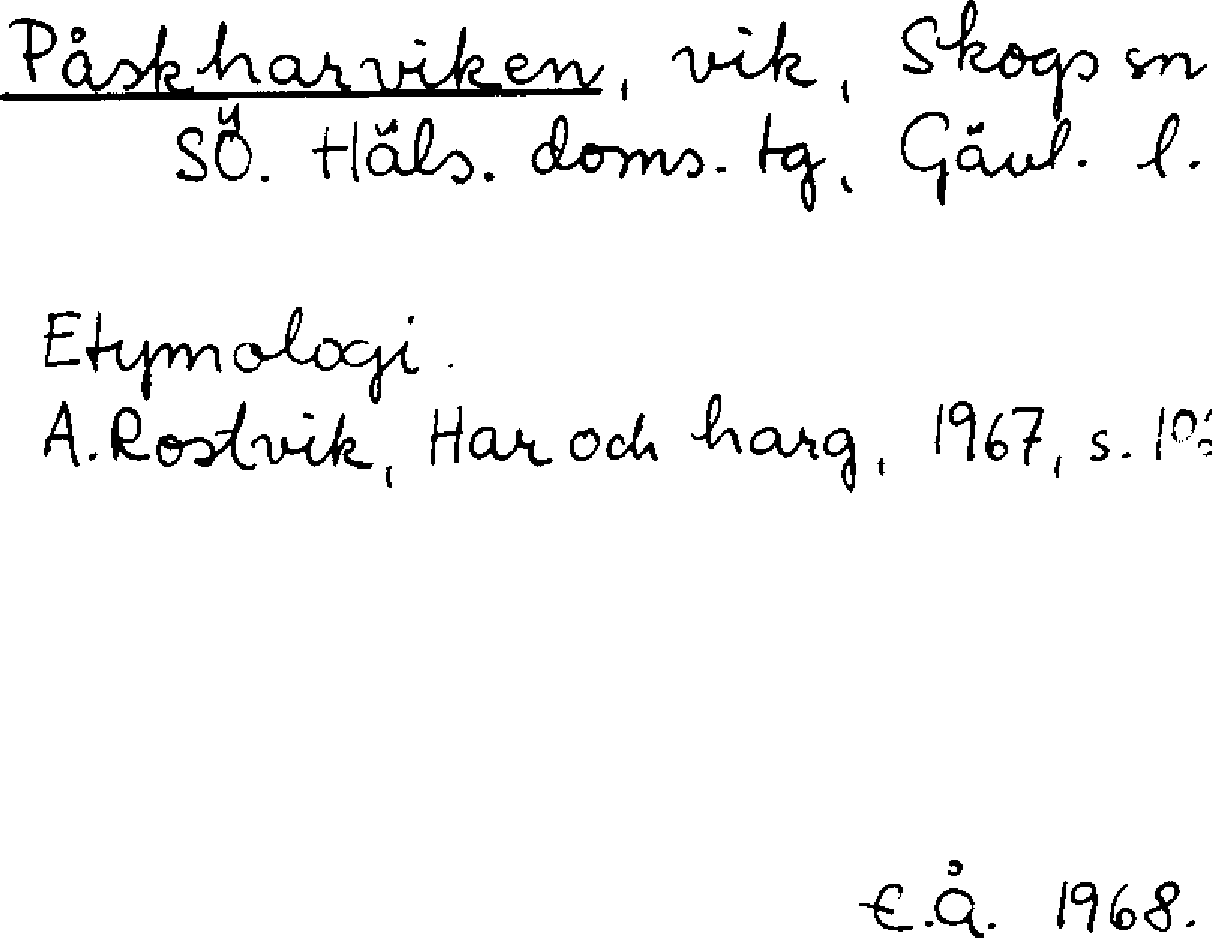 Påskharviken, vik, Skogs sn
SÖ. Häls. doms. tg, Gävl. l.
Etymologi.
A. Rostvik, Har och harg, 1967, s.
E.Å. 1968.